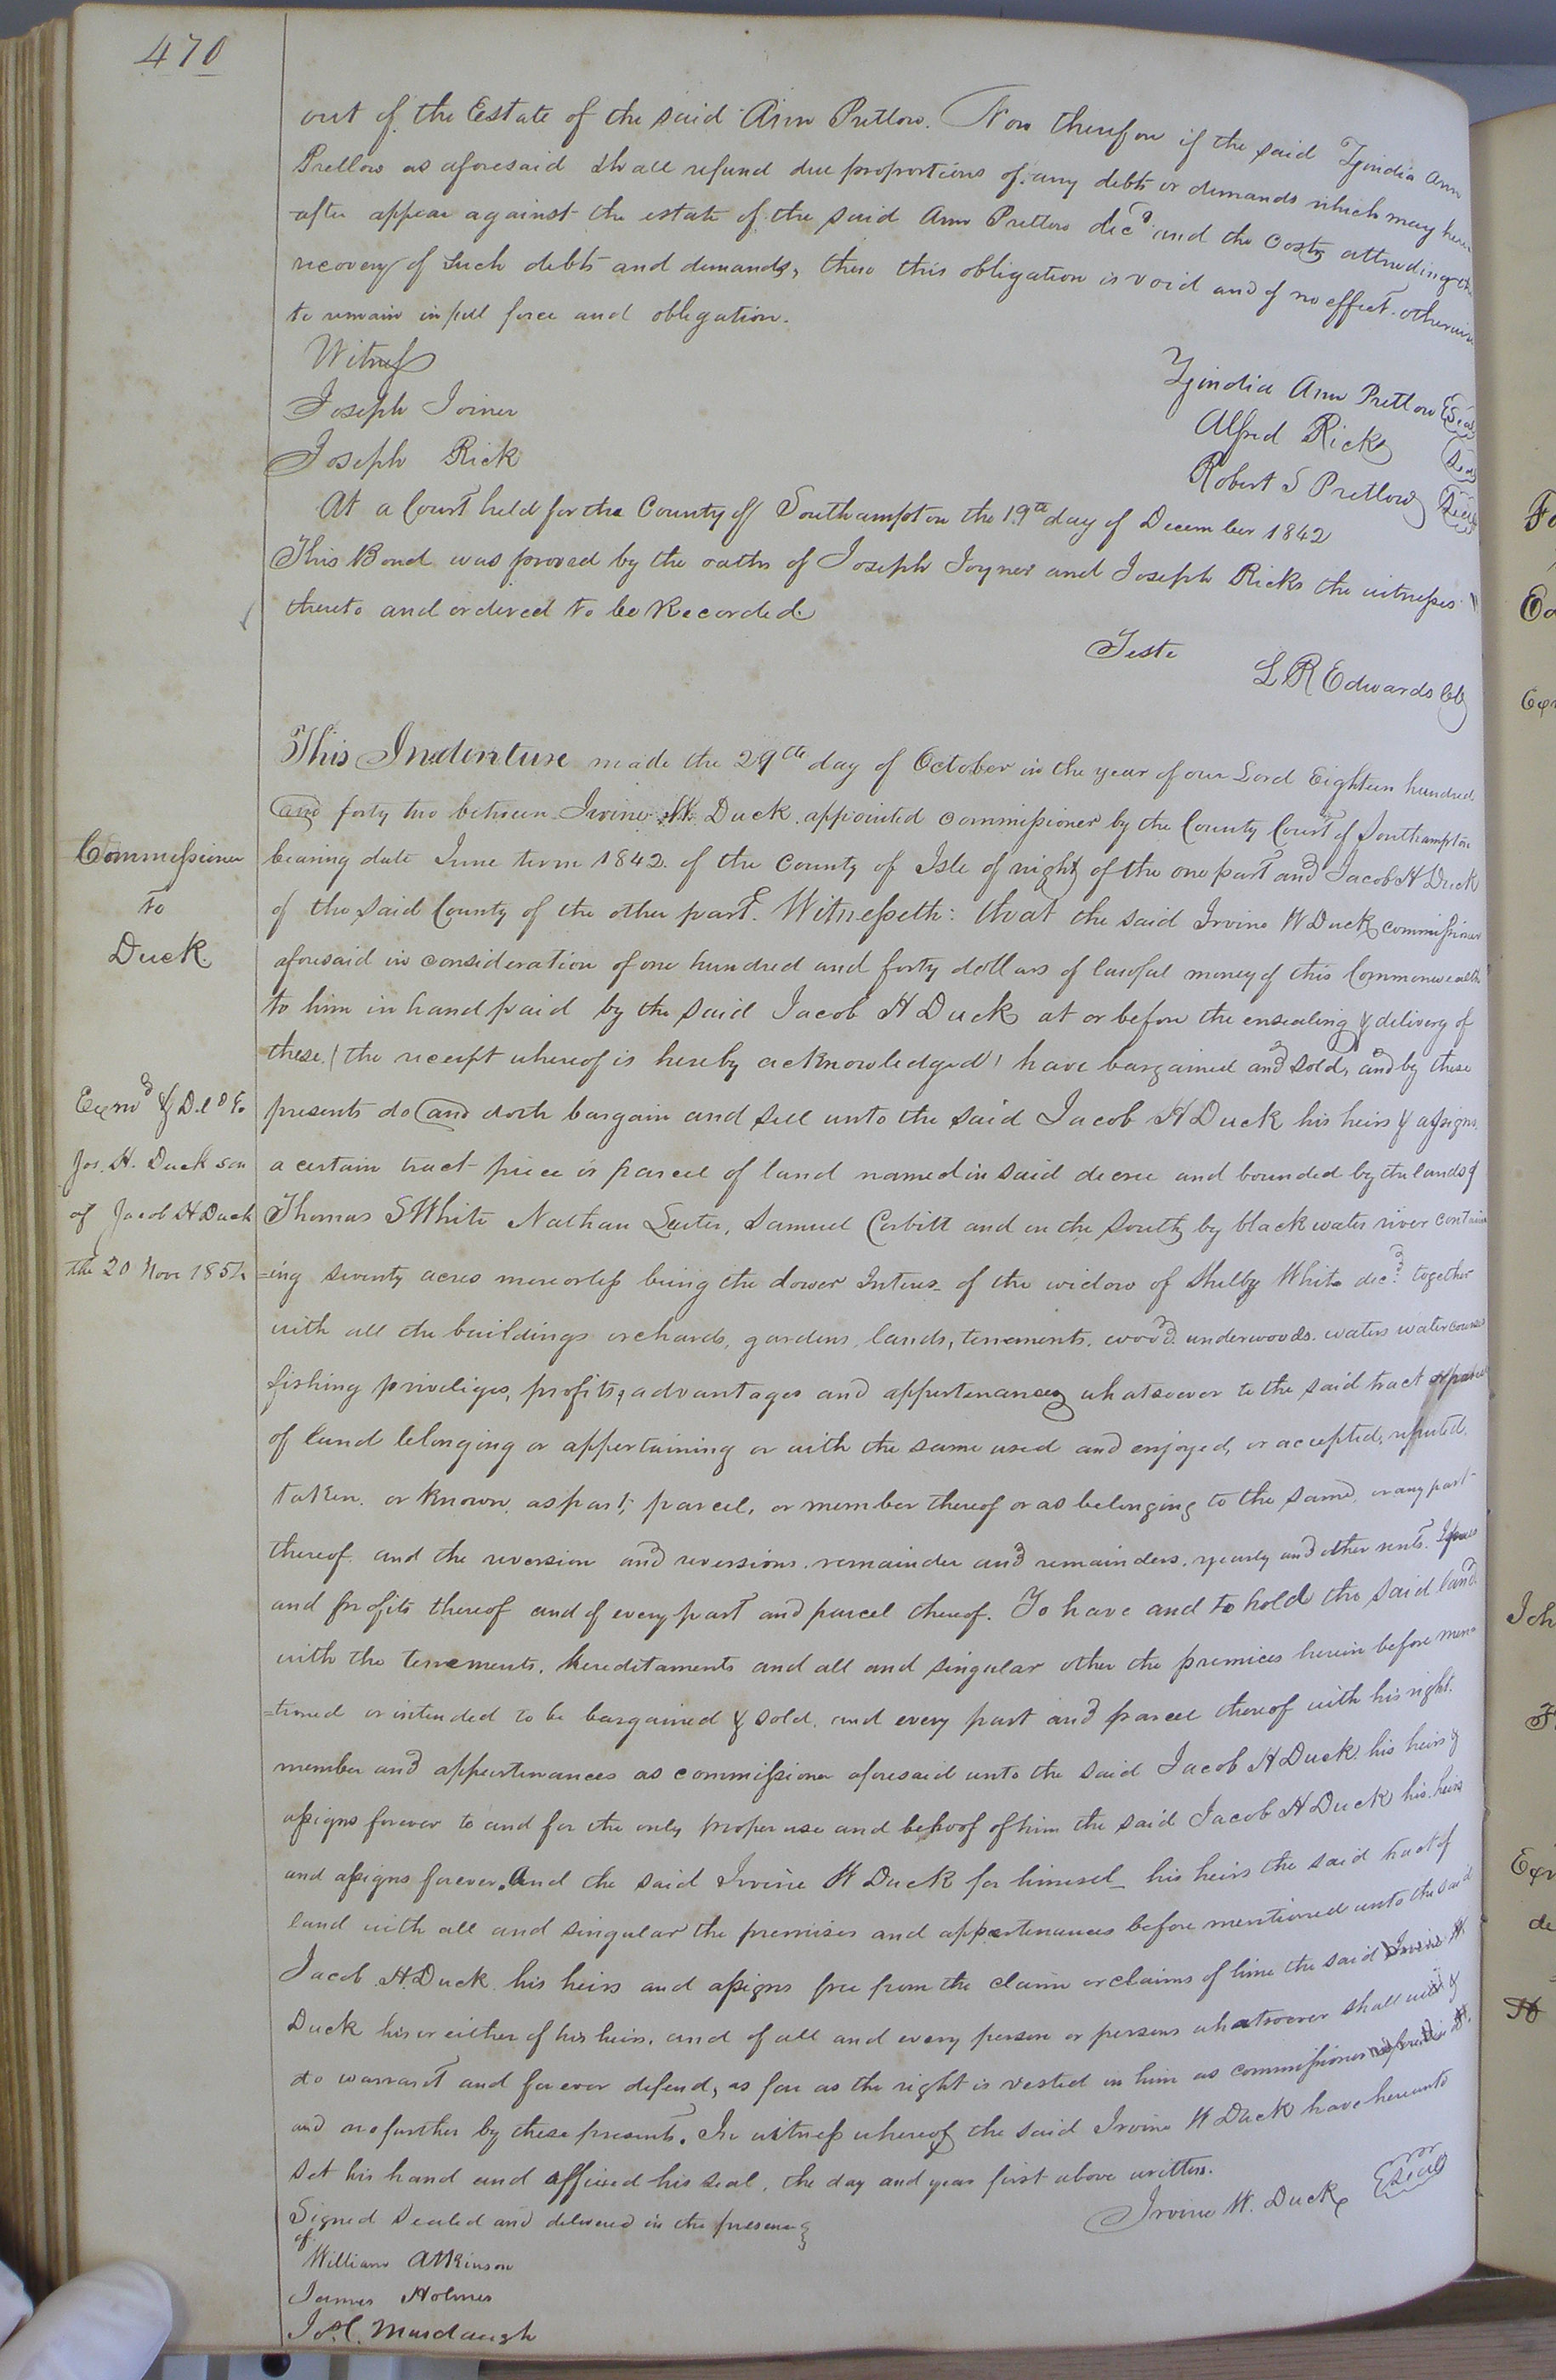 470
out of the Estate of the said Ann Pretlow. Now therefore if the said Zyindia Ann
Pretlow as aforesaid shall refund due proportions of any debts or demands which may here
after appear against the estate of the said Ann Pretlow decd. and the costs attending the
recovery of such debts and demands, then this obligation is void and of no effect otherwise
to remain in full force and obligation.
Witness
Joseph Joiner
Joseph Rick
Zyindia Ann Pretlow Seal
Alfred Ricks Seal
Robert S Pretlow Seal
At a Court held for the County of Southampton the 19th day of December 1842
This Bond was proved by the oaths of Joseph Joyner and Joseph Ricks the witnesses
thereto and ordered to be Recorded
Teste
L R Edwards Clk
Commissioner
to
Duck
This Indenture made the 29th day of October in the year of our Lord Eighteen hundred
and forty two between Irvine W. Duck appointed commissioner by the County Court of Southampton
bearing date June term 1842. of the County of Isle of night of the one part and Jacob H Duck
of the said County of the other part. Witnesseth: that the said Irvine W Duck commissioner
aforesaid in consideration of one hundred and forty dollars of lawful money of this Commonwealth
to him in hand paid by the said Jacob H Duck at or before the ensealing & delivery of
these. (the receipt whereof is hereby acknowledged) have bargained and sold, and by these
presents do and doth bargain and sell unto the said Jacob H Duck his heirs & assigns.
Exmd & Deld to
Jos. H. Duck son
of Jacob H Duck
the 20 Nov 1854
a certain tract piece or parcel of land named in said decree and bounded by the lands of
Thomas S White Nathan Lester, Samuel Corbitt and on the south by black water river contain
=ing seventy acres more or less being the dower Interes_ of the widow of Shelby White decd. together
with all the buildings orchards, gardens, lands, tenements. wood. underwoods. waters watercourses
fishing priveliges, profits, advantages and appertenances whatsoever to the said tract or parcel
of land belonging or appertaining or with the same used and enjoyed, or accepted, reputed.
taken. or known. as part, parcel, or member thereof or as belonging to the same. or any part
thereof. and the reversion and reversions. remainder and remainders. yearly and other rents. Issues
and profits thereof and of every part and parcel thereof. To have and to hold the said land
with the tenements. hereditaments and all and singular other the premices herein before men=
=tioned or intended to be bargained & sold. and every part and parcel thereof with his right.
member and appurtenances as commissioner aforesaid unto the said Jacob H Duck his heirs &
assigns forever to and for the only proper use and behoof of him the said Jacob H Duck his heirs
and assigns forever. And the said Irvine W Duck for himsel_ his heirs the said tract of
land with all and singular the premises and appertenances before mentioned unto the said
Jacob H. Duck his heirs and assigns free from the claim or claims of him the said Irvine W.
Duck his or either of his heirs. and of all and every person or persons whatsoever shall will &
do warrant and forever defend, as far as the right is vested in him as commissioner
and no further by these presents. In witness whereof the said Irvine W Duck have hereunto
set his hand and affixed his seal, the day and year first above written.
Signed Sealed and delivered in the presence
of
Irvine W. Duck Seal
William Atkinson
James Holmes
Jos. C. Murdaugh